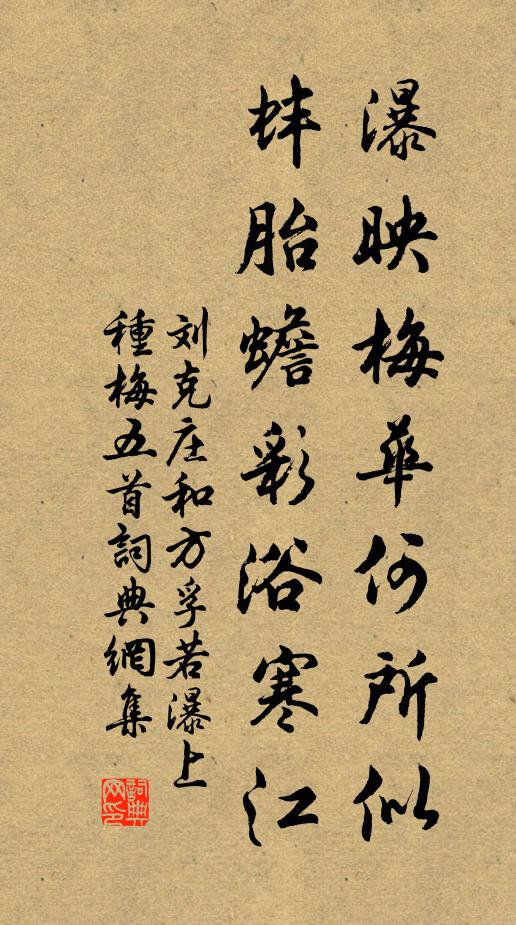 瀑映梅華何所似
蚌胎蟾彩浴寒江
刘克庄和方孚若瀑上
種梅五首詞典網集
詞典网印